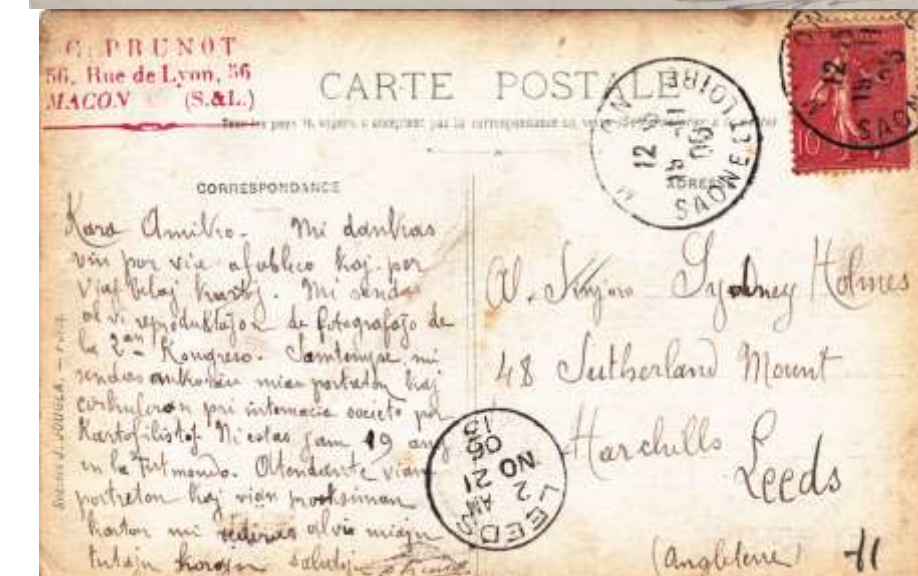 C. PRUNOT
56, Rue de Lyon, 56
MACON (S.&L.)
CARTE POSTALE
CORRESPONDANCE
ADRESSE
Kara Amiko. Mi dankas
vin por via afableco kaj por
viaj belaj kartoj. Mi sendas
al vi reproduktaĵon de fotografaĵo de
la 2an Kongreso. Samtempe mi
sendas ankoraŭ mian portreton kaj
cirkuleron pri internacia societo por
Kartofilistoj. Ni estas jam 19 anoj
en la tuta mondo. Atendante vian
portreton kaj vian proksiman
karton mi sendas al vi miajn
tutajn korajn salutojn
Al. Sinjoro Sydney Holmes
48 Sutherland Mount
Harehills
Leeds
(Angleterre)
11
SAONE ET LOIRE
12
LEEDS
AM
21
NO 2
06
10
SAON